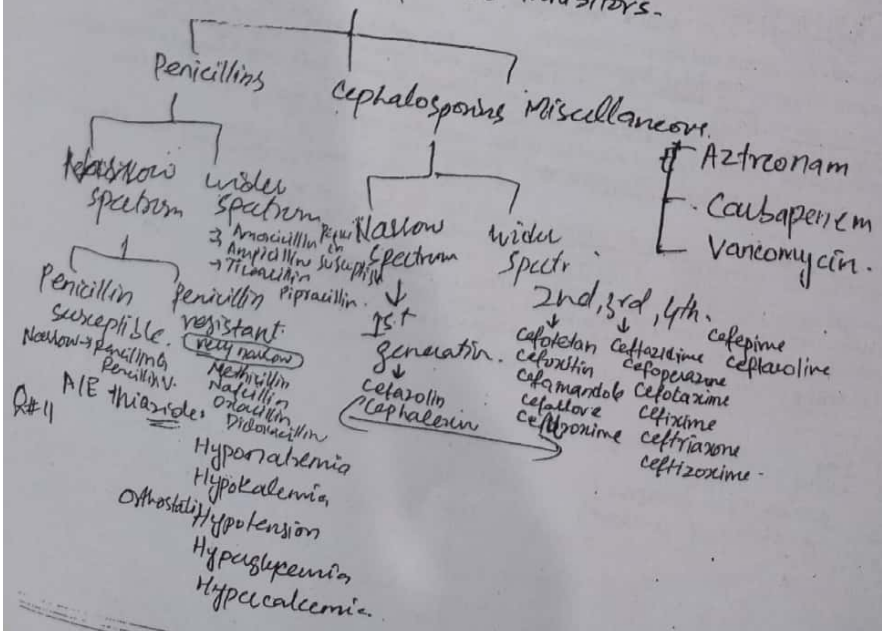 Penicillins
Cephalosporins Miscellaneous.
Aztreonam
Carbapenem
Vancomycin.
Narrow
spectrum
wider
spectrum
→ Amoxicillin
→ Ampicillin
→ Ticarcillin
Pipracillin.
Penicillin
susceptible.
Narrow → Penicillin G
Penicillin V.
Penicillin
resistant.
very narrow
Methicillin
Nafcillin
Oxacillin
Dicloxacillin
Narrow
spectrum
1st
generation.
cefazolin
Cephalexin
wider
spectr
2nd, 3rd, 4th.
cefotetan
cefoxitin
cefamandole
cefaclore
cefuroxime
ceftazidime
cefoperazone
cefotaxime
cefixime
ceftriaxone
ceftizoxime.
cefepime
ceftaroline
A/E thiazides
Q#11
Hyponatremia
Hypokalemia
Orthostatic Hypotension
Hyperglycemia
Hypercalcemia.